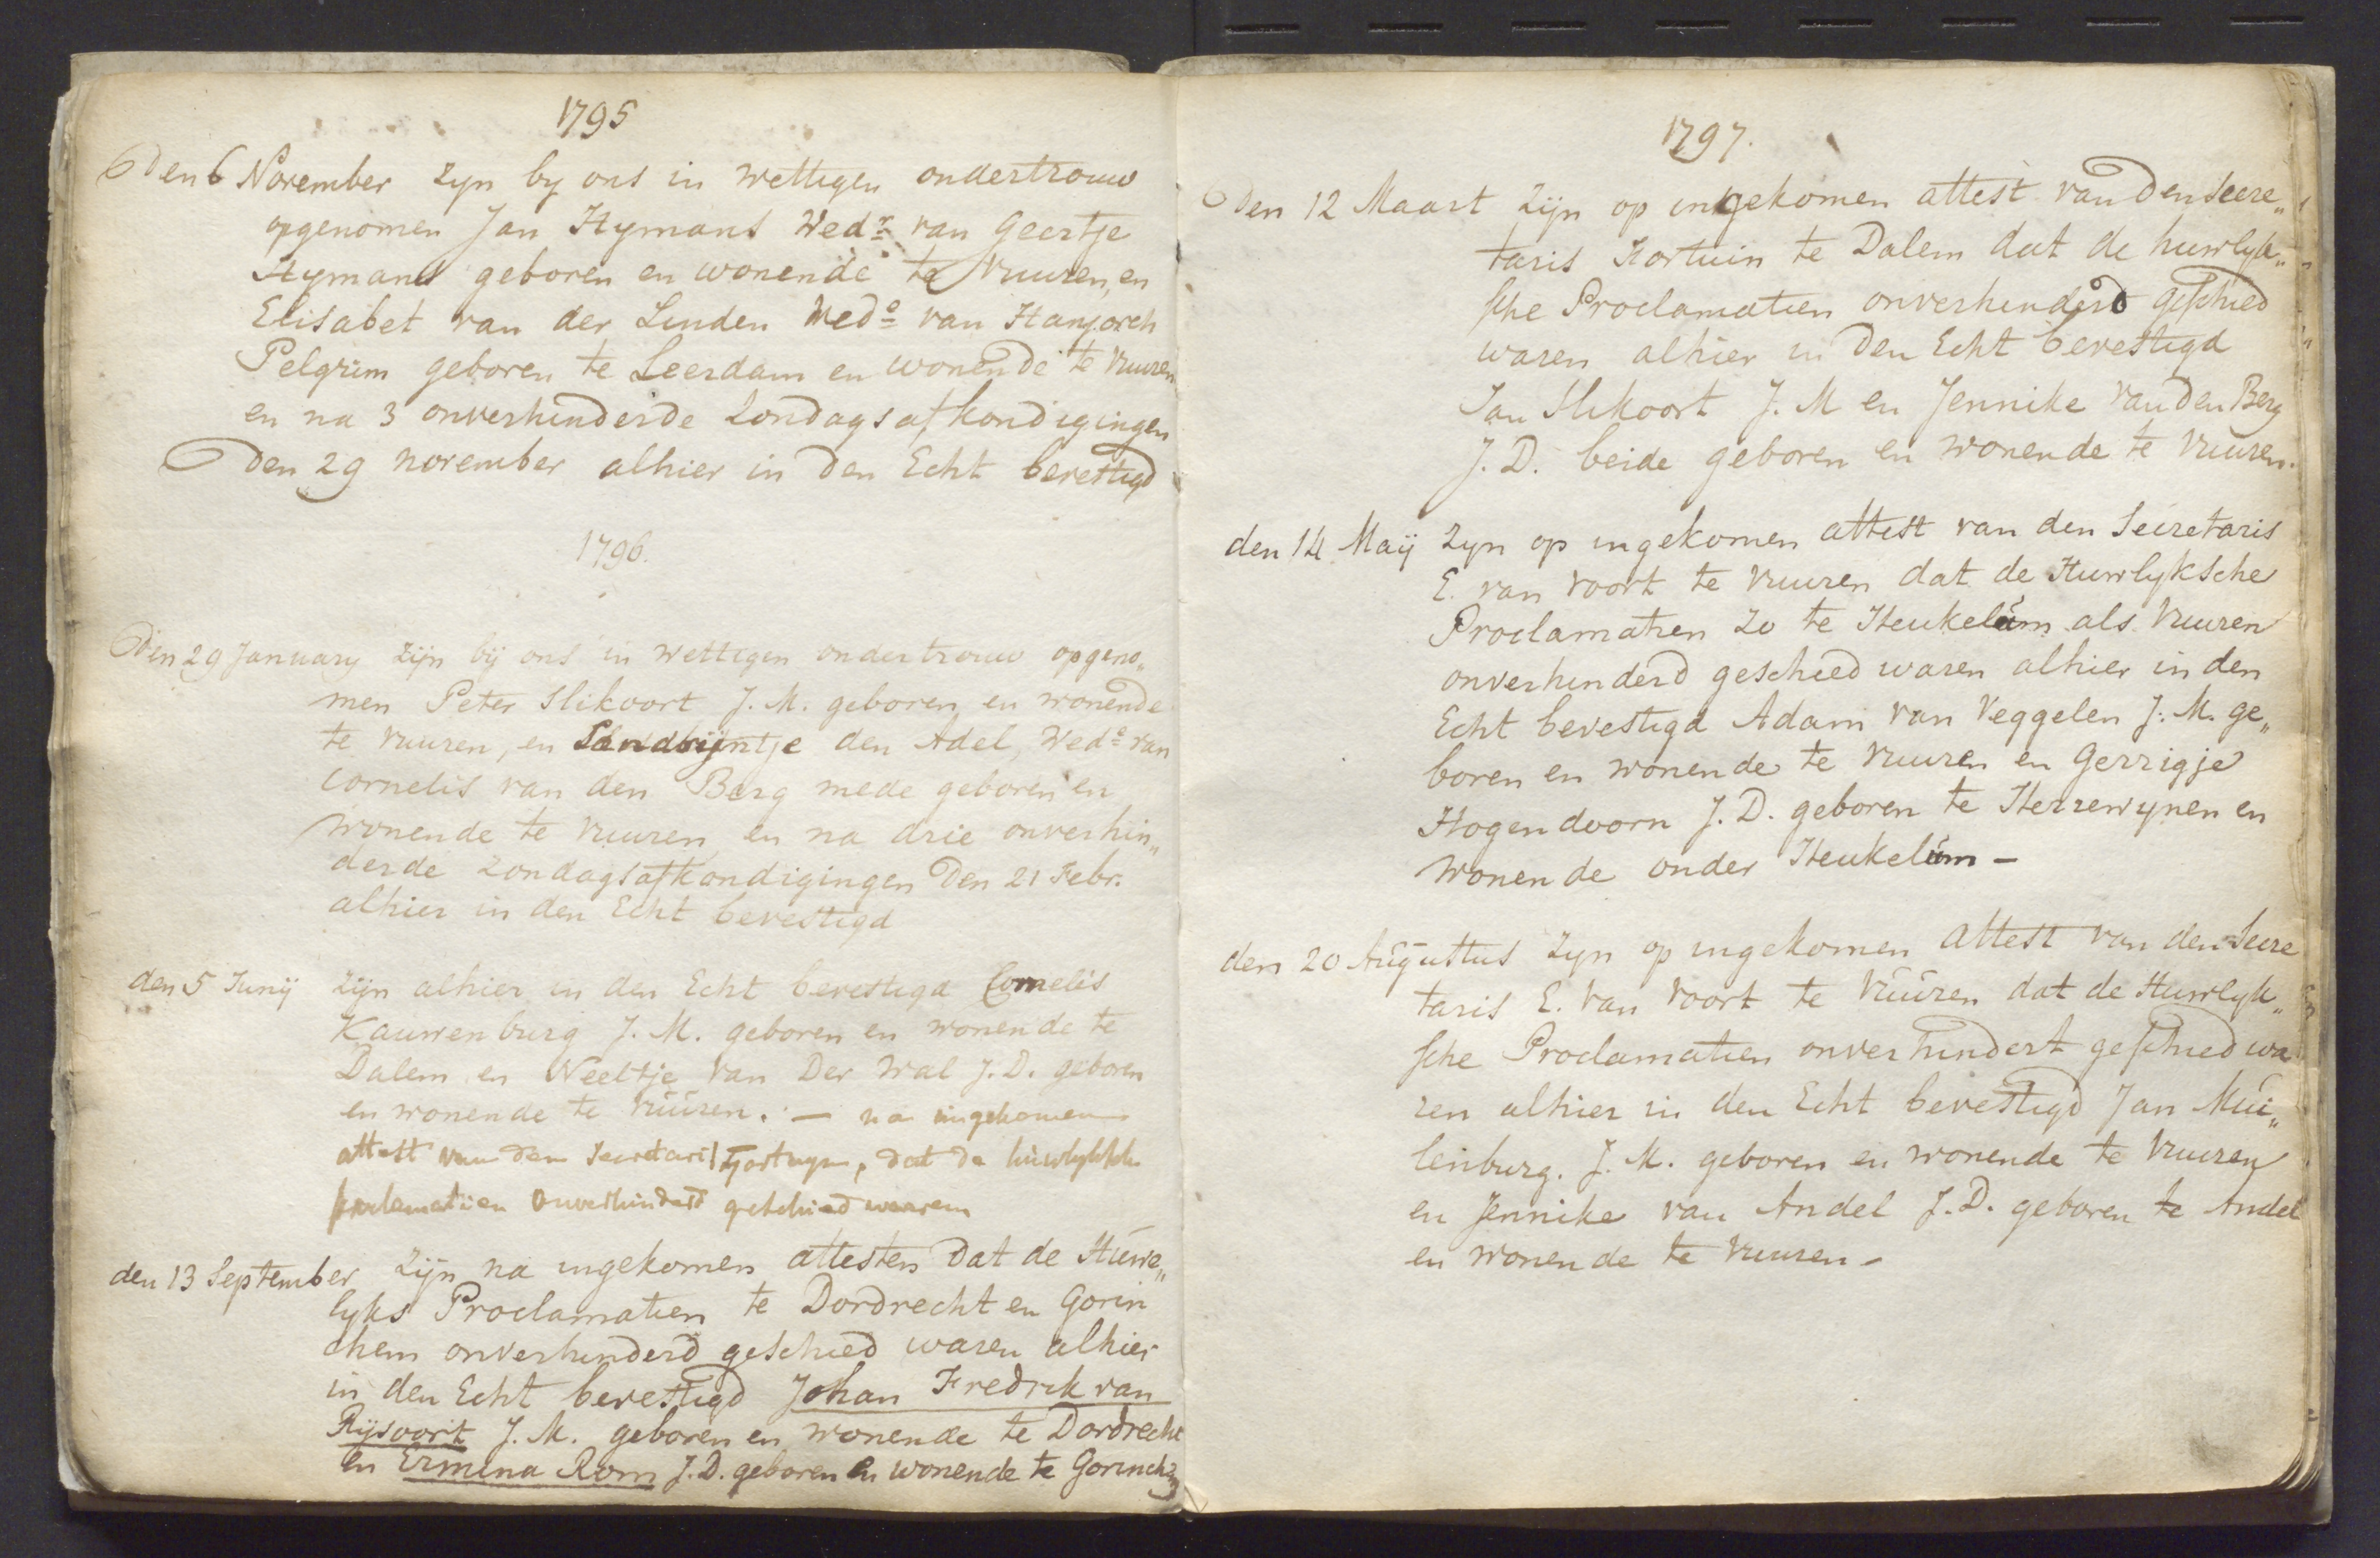 1795
Den 6 November zyn by ons in wettigen ondertrouw
opgenomen Jan Hymans Wedr. van Geertje
Hymans geboren en wonende te Vuuren, en
Elisabet van der Linden Wedo van
Pelgrim geboren te Leerdam en wonende te Vuuren
en na 3 onverhinderde Zondagsafkondigingen
Den 29 november alhier in den Echt bevestigd
1796.
Den 29 January zijn bij ons in wettigen ondertrouw opgeno„
men Peter Slikoort J. M. geboren en wonende
te Vuuren, en Sandrijntje den Adel, Wede van
Cornelis van den Berg mede geboren en
wonende te Vuuren en na drie onverhin„
derde Zondagsafkondigingen Den 21 Febr.
alhier in den Echt bevestigd
den 5 Junij zijn alhier in den Echt bevestigd Cornelis
Kauwenburg J. M. geboren en wonende te
Dalem en Neeltje van Der Wal J. D. geboren
en wonende te Vuuren. — na ingekomen
attest van den Secretaris Fortuyn, dat de huwlyksche
proclamatiien onverhindert geschied waaren
den 13 September zijn na ingekomen attesten dat de Huwe„
lyks Proclamatien te Dordrecht en Gorin
chem onverhinderd geschied waren alhier
in den Echt bevestigd Johan Fredrik van
Rijsoort J. M. geboren en wonende te Dordrecht
en Ermina Rom J. D. geboren en wonende te Gorinchem
1797.
Den 12 Maart zijn op ingekomen attest van den Secre„
taris Kortuin te Dalem dat de huwlyk„
sche Proclamatien onverhinderd geschied
waren alhier in den Echt bevestigd
Jan Slikoort J. M en Jennike van den Berg
J. D. beide geboren en wonende te Vuuren.
den 14 Maij zyn op ingekomen attest van den Secretaris
E. van Voort te Vuuren dat de Huwlyksche
Proclamatien zo te Heukelum als Vuuren
onverhinderd geschied waren alhier in den
Echt bevestigd Adam van Veggelen J. M. ge„
boren en wonende te Vuuren en Gerrigje
Hogendoorn J. D. geboren te Herrewynen en
wonende onder Heukelum –
den 20 Augustus zyn op ingekomen attest van den Secre
taris E. van Voort te Vuuren dat de Huwlyk„
sche Proclamatien onverhindert geschied wa
ren alhier in den Echt bevestigd Jan Mui„
lenburg. J. M. geboren en wonende te Vuuren
en Jennike van Andel J. D. geboren te Andel
en wonende te Vuuren –